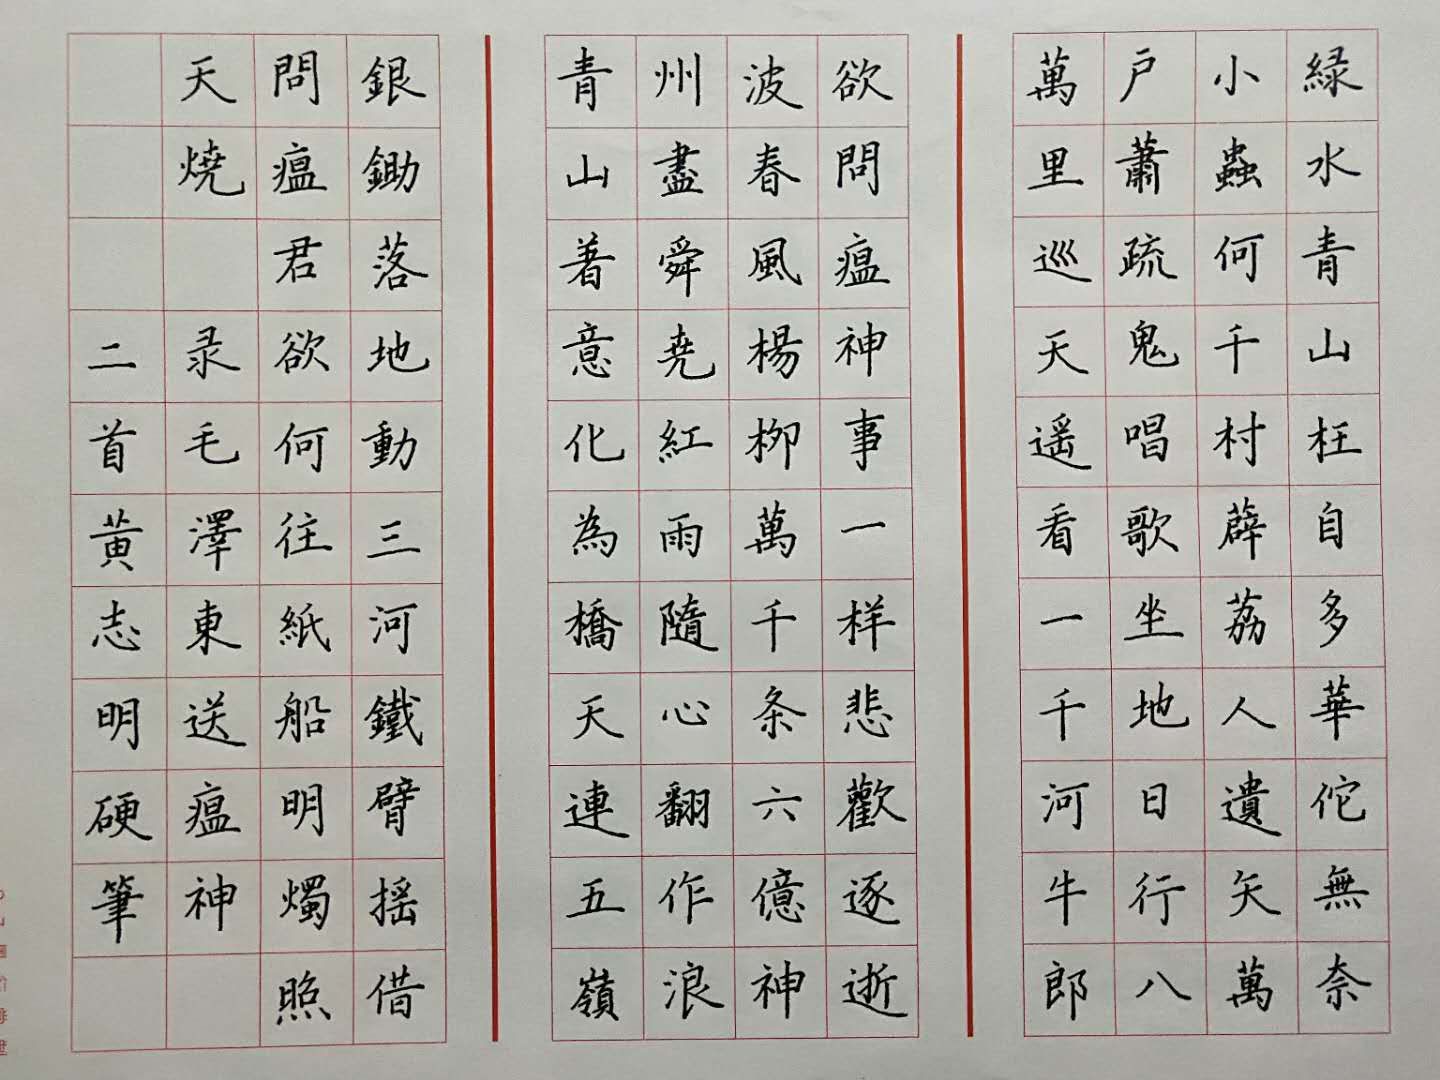 緑水青山枉自多華佗無奈
小蟲何千村薜荔人遺矢萬
户蕭疏鬼唱歌坐地日行八
萬里巡天遥看一千河牛郎
欲問瘟神事一样悲歡逐逝
波春風楊柳萬千条六億神
州盡舜尭紅雨隨心翻作浪
青山着意化為橋天連五嶺
銀鋤落地動三河鐵臂摇借
問瘟君欲何往紙船明燭照
天燒 录毛澤東送瘟神
二首黄志明硬筆